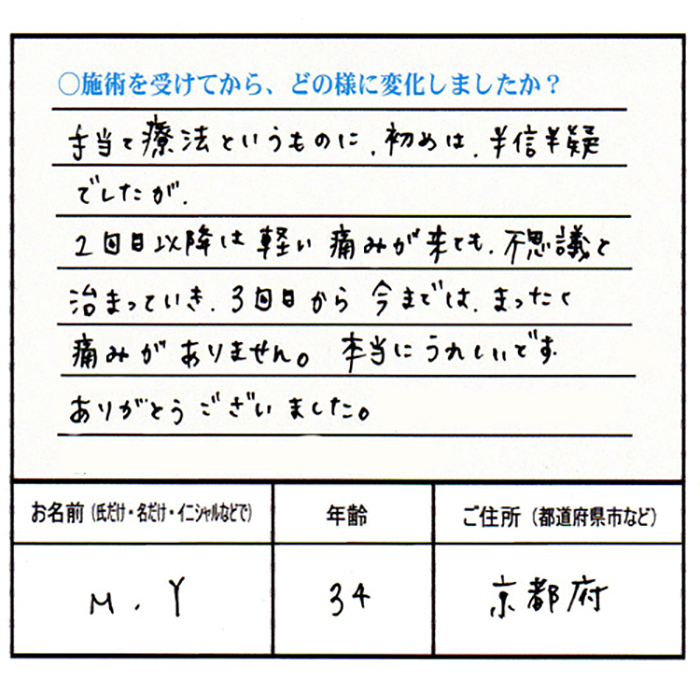 ○施術を受けてから、どの様に変化しましたか？
手当て療法というものに、初めは、半信半疑
でしたが、
2回目以降は軽い痛みが来ても、不思議と
治まっていき、3回目から今までは、まったく
痛みがありません。本当にうれしいです。
ありがとうございました。
お名前（氏だけ・名だけ・イニシャルなどで） 年齢 ご住所（都道府県市など）
M.Y 34 京都府